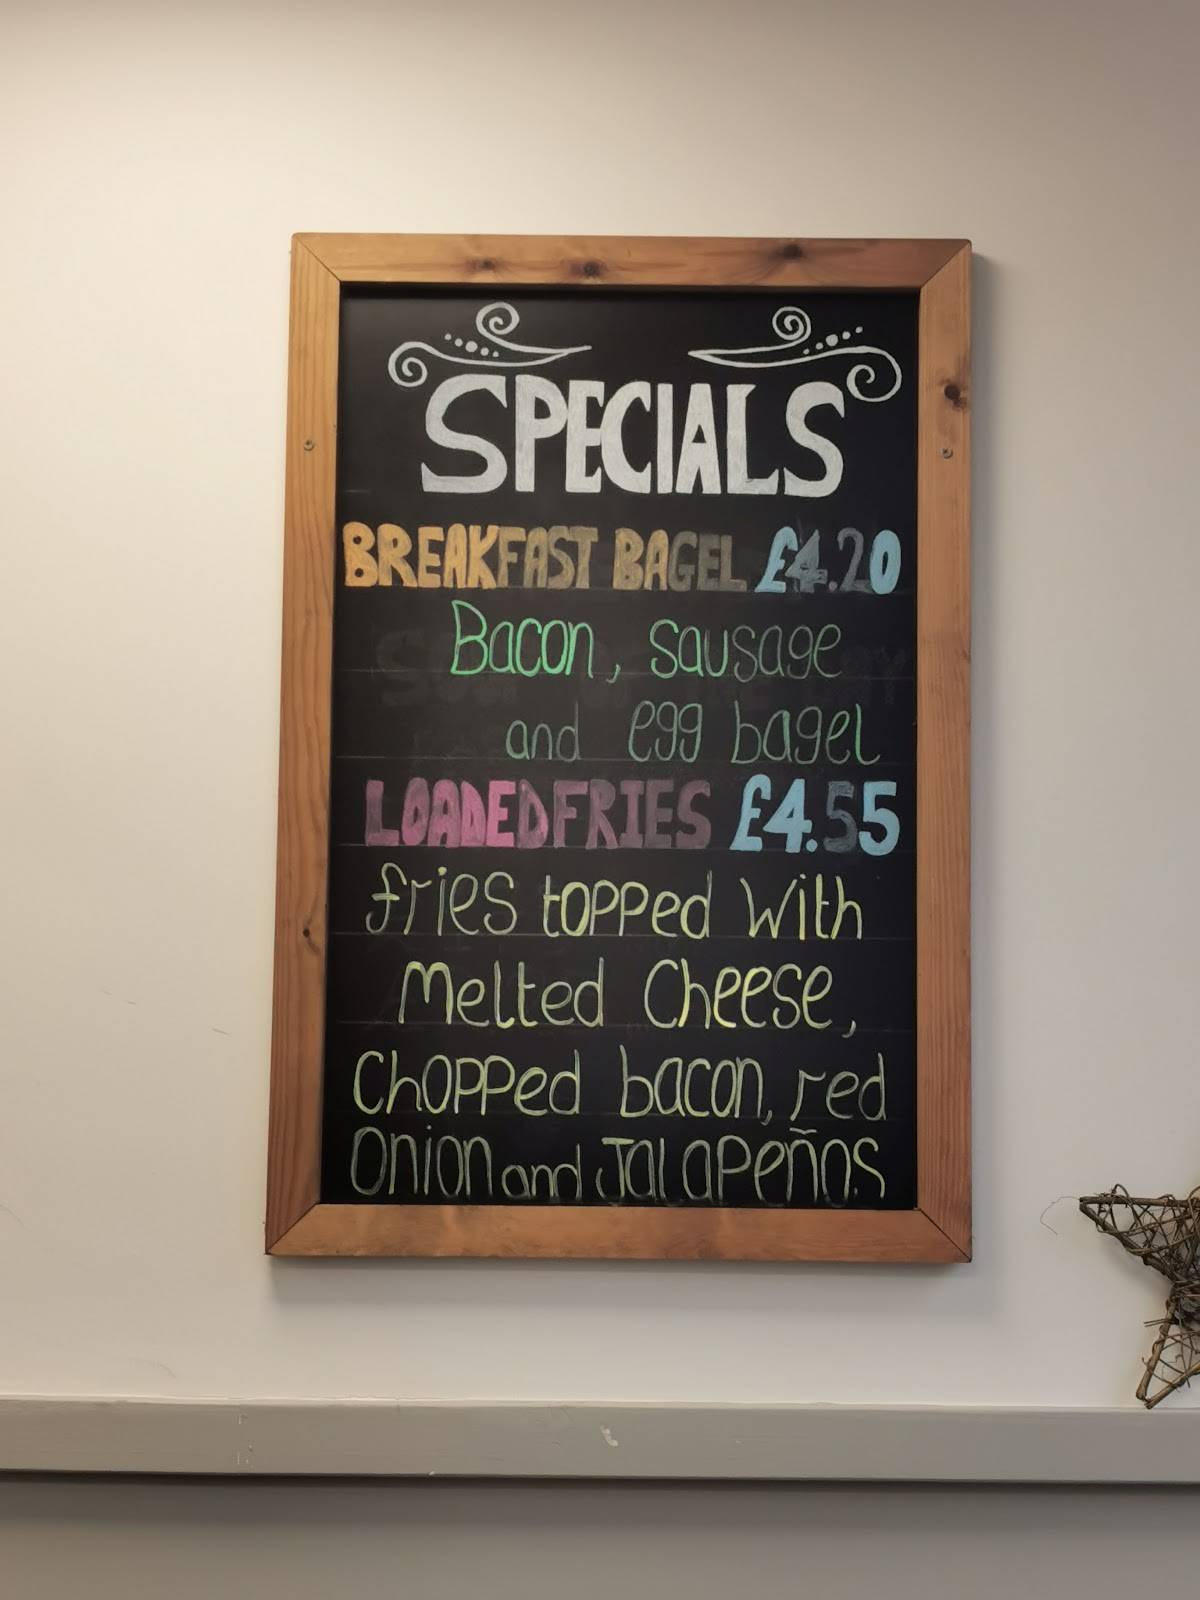 SPECIALS
BREAKFAST BAGEL £4.20
Bacon, sausage
and egg bagel
LOADED FRIES £4.55
fries topped with
Melted Cheese,
Chopped bacon, red
Onion and Jalapeños